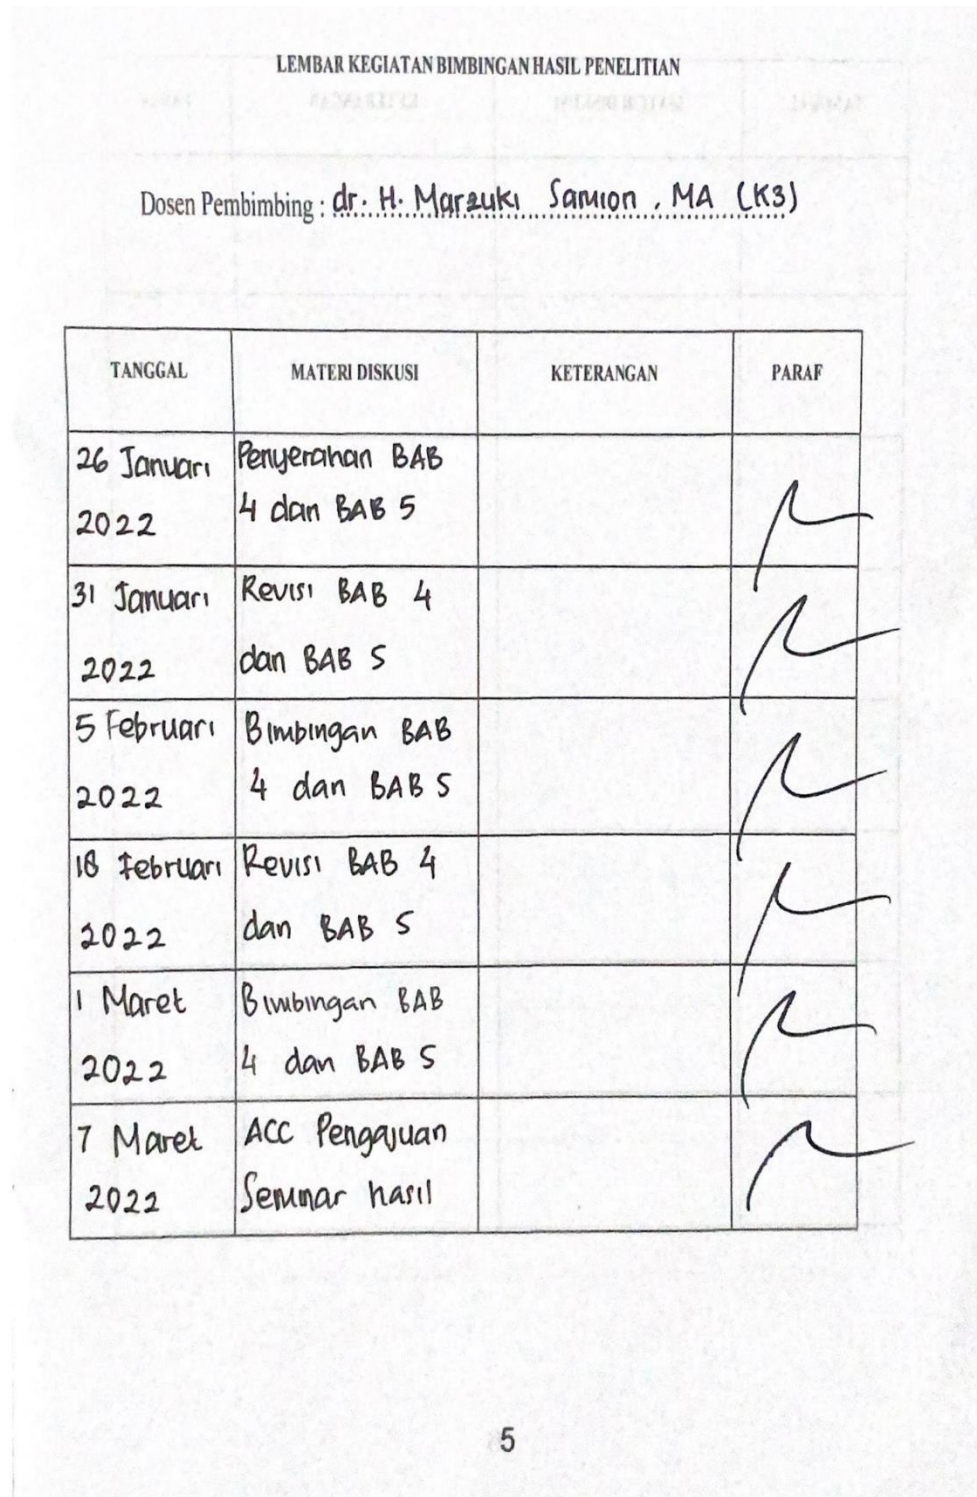 LEMBAR KEGIATAN BIMBINGAN HASIL PENELITIAN
Dosen Pembimbing : dr. H. Marzuki Samion, MA (K3)
TANGGAL MATERI DISKUSI KETERANGAN PARAF
26 Januari Penyerahan BAB
2022 4 dan BAB 5
31 Januari Revisi BAB 4
2022 dan BAB 5
5 Februari Bimbingan BAB
2022 4 dan BAB 5
18 Februari Revisi BAB 4
2022 dan BAB 5
1 Maret Bimbingan BAB
2022 4 dan BAB 5
7 Maret ACC Pengajuan
2022 Seminar hasil
5